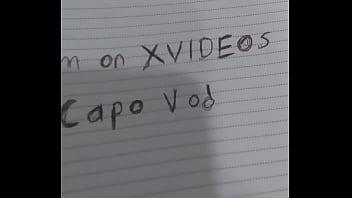 m on XVIDEOS
Capo Vod